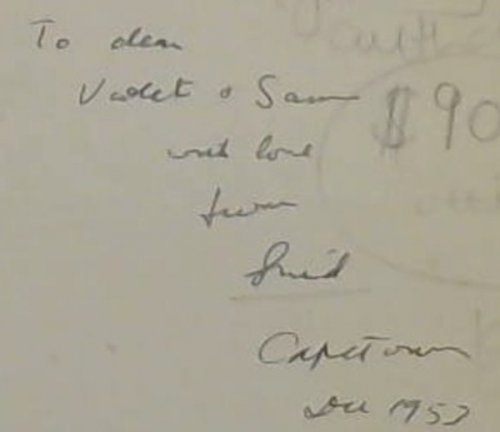 To dear
Violet & Sam
with love
from
Capetown
Dec 1957
$90